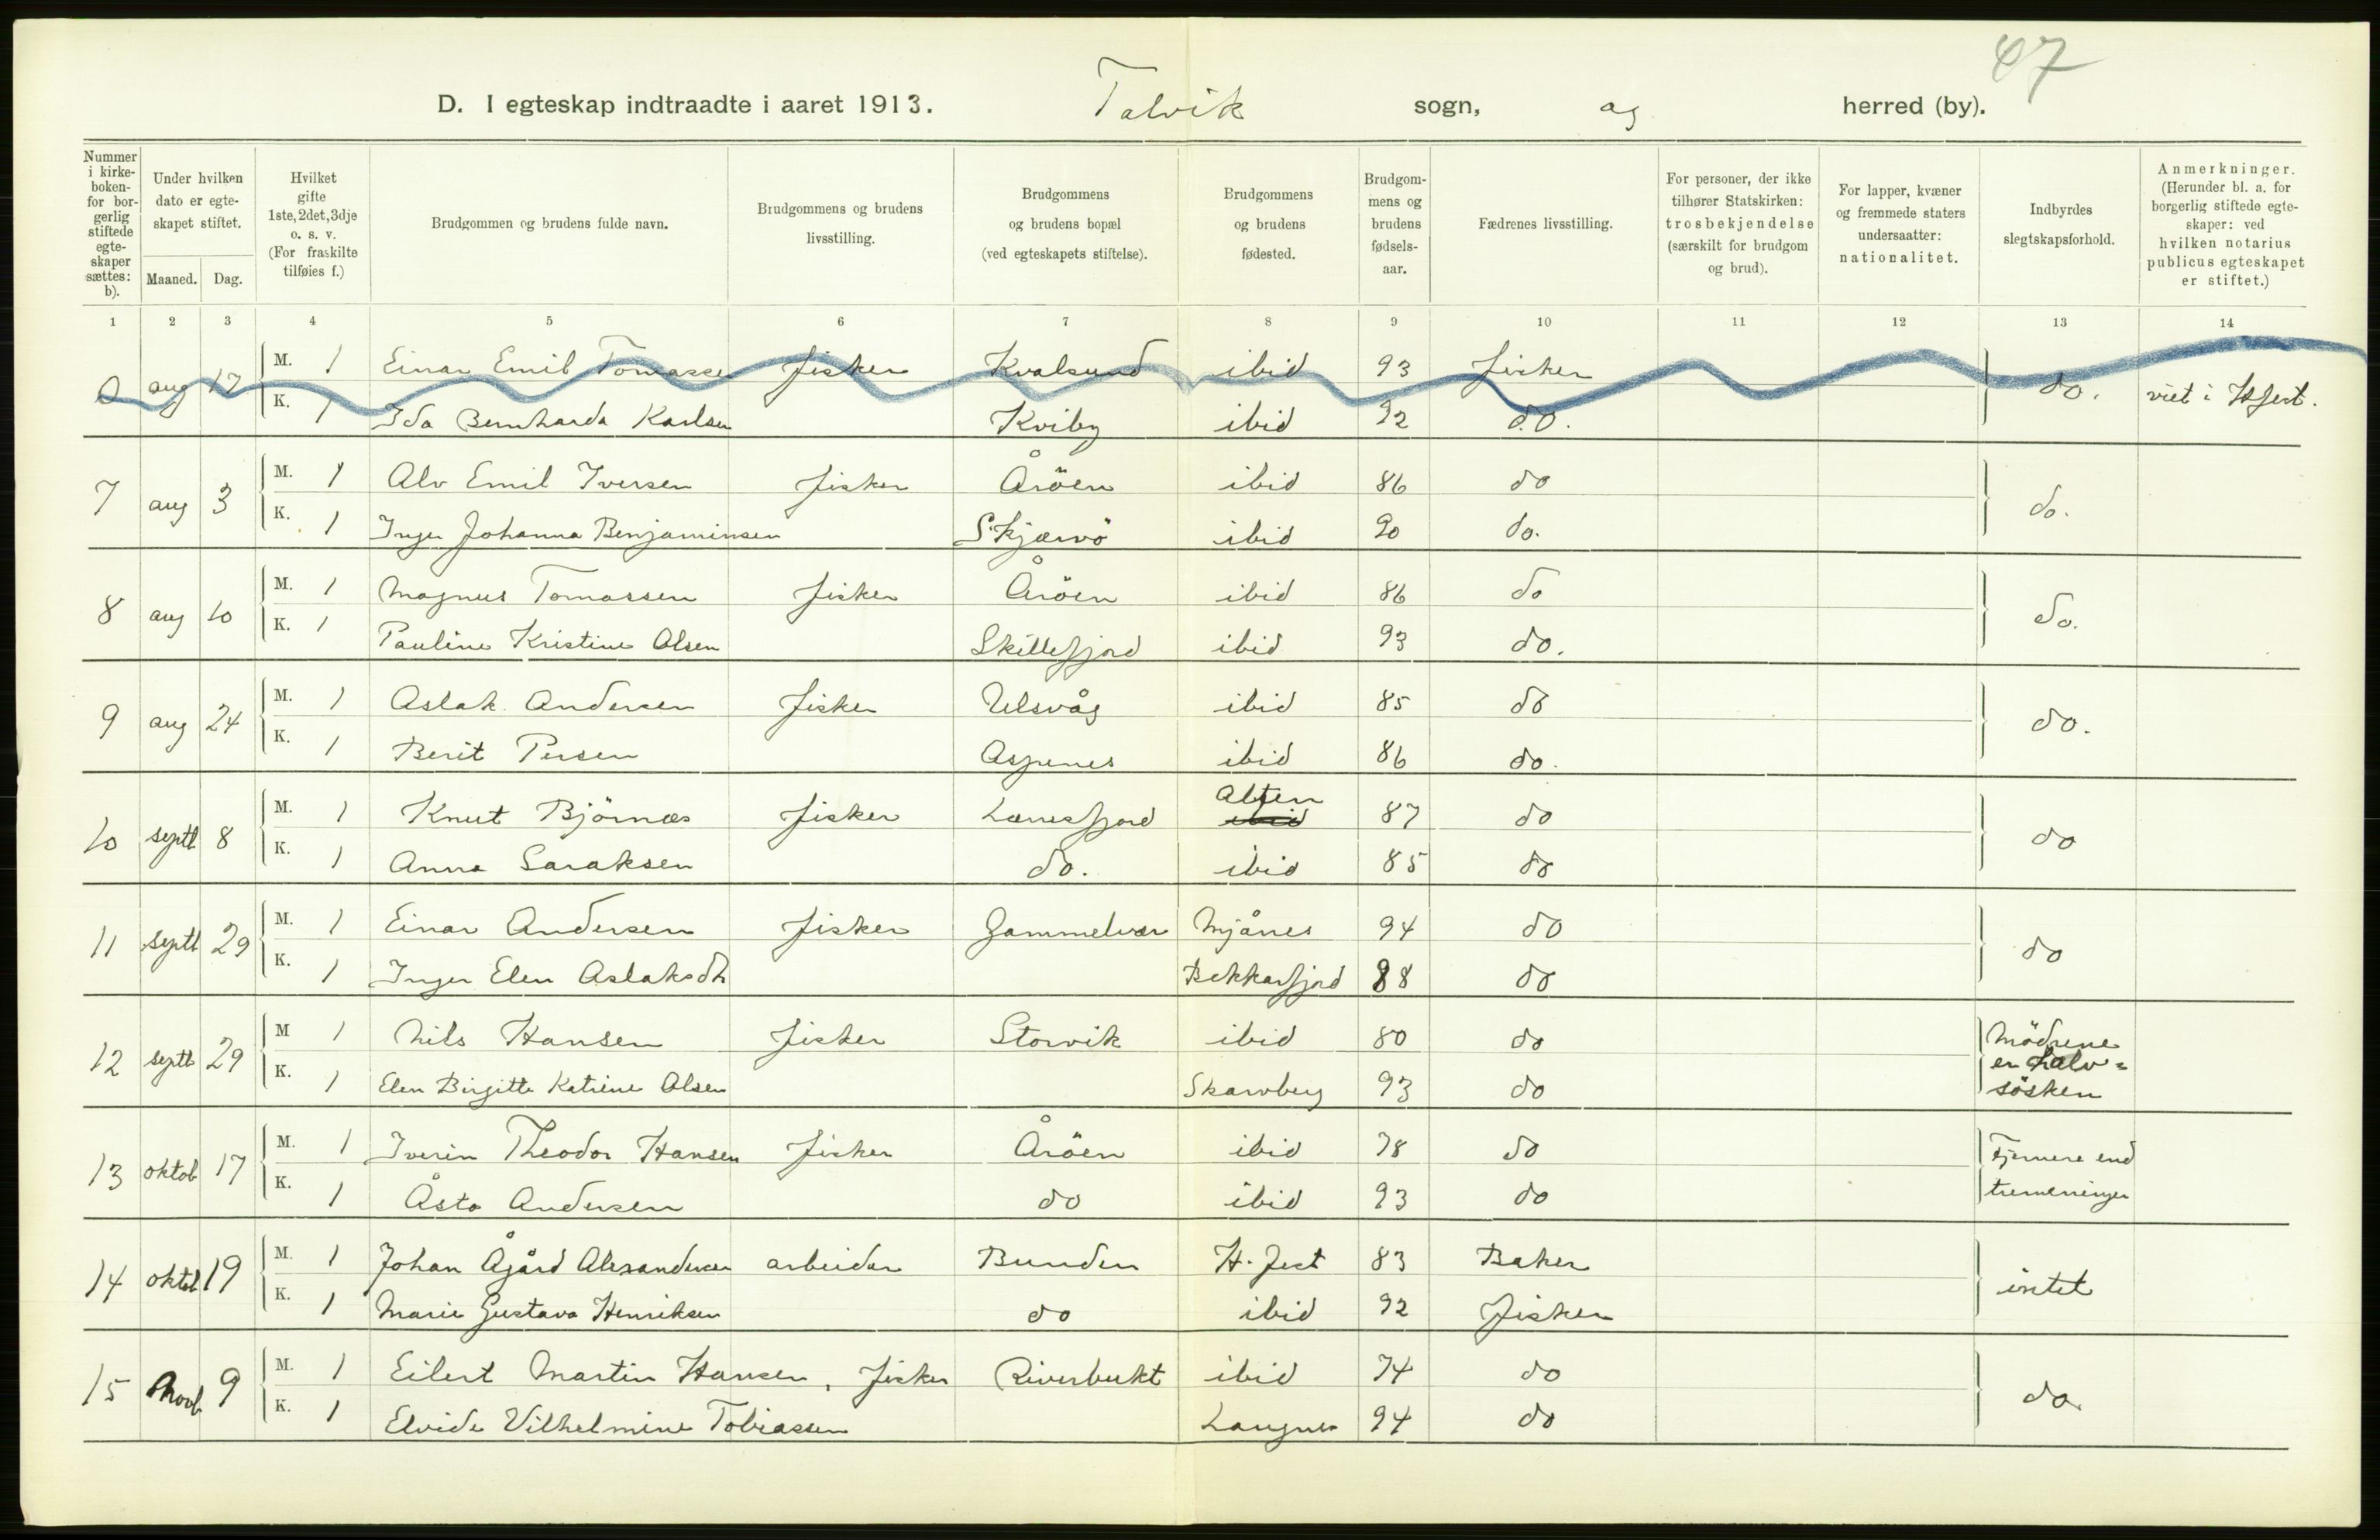 47
D. I egteskap indtraadte i aaret 1913. Talvik sogn, og herred (by).
Nummer i kirke-boken- for bor-gerlig stiftede egte-skaper sættes: b).
Under hvilken dato er egte-skapet stiftet.
Maaned. Dag.
Hvilket gifte 1ste, 2det, 3dje o. s. v. (For fraskilte tilføies f.)
Brudgommen og brudens fulde navn.
Brudgommens og brudens livsstilling.
Brudgommens og brudens bopæl (ved egteskapets stiftelse).
Brudgommens og brudens fødested.
Brudgom-mens og brudens fødsels-aar.
Fædrenes livsstilling.
For personer, der ikke tilhører Statskirken: trosbekjendelse (særskilt for brudgom og brud).
For lapper, kvæner og fremmede staters undersaatter: nationalitet.
Indbyrdes slegtskapsforhold.
Anmerkninger. (Herunder bl. a. for borgerlig stiftede egte-skaper: ved hvilken notarius publicus egteskapet er stiftet.)
1 2 3 4 5 6 7 8 9 10 11 12 13 14
0 aug 17 M. 1 Einar Emil Tomassen fisker Kvalsund ibid 93 fisker do. viet i Hfest.
K. 1 Ida Bernharda Karlsen Kviby ibid 92 do.
7 aug 3 M. 1 Alv Emil Iversen fisker Åröen ibid 86 do do.
K. 1 Inger Johanna Benjaminsen Skjærvö ibid 90 do.
8 aug 10 M. 1 Magnus Tomassen fisker Åröen ibid 86 do do.
K. 1 Pauline Kristine Olsen Skillefjord ibid 93 do.
9 aug 24 M. 1 Aslak Andersen fisker Ulsvåg ibid 85 do do.
K. 1 Berit Persen Aspenes ibid 86 do.
10 septb 8 M. 1 Knut Björnæs fisker Lærresfjord Alten ibid 87 do do
K. 1 Anna Saraksen do. ibid 85 do
11 septb 29 M. 1 Einar Andersen fisker Gammelvær Mjånes 94 do do
K. 1 Inger Elen Aslaksdh Bekkarfjord 88 do
12 septb 29 M 1 Nils Hansen fisker Storvik ibid 80 do Mödrene er halv=sösken
K. 1 Elen Birgitte Katrine Olsen Skarvberg 93 do
13 oktob 17 M. 1 Iverin Theodor Hansen fisker Åröen ibid 78 do Fjernere end tremeninger
K. 1 Åsta Andersen do ibid 93 do
14 oktob 19 M. 1 Johan Ågård Alexandersen arbeider Bunden H. fest 83 Baker intet
K. 1 Marie Gustava Henriksen do ibid 92 fisker
15 Novb 9 M. 1 Eilert Martin Hansen, fisker Riverbukt ibid 74 do do.
K. 1 Elvide Vilhelmine Tobiassen Langnes 94 do